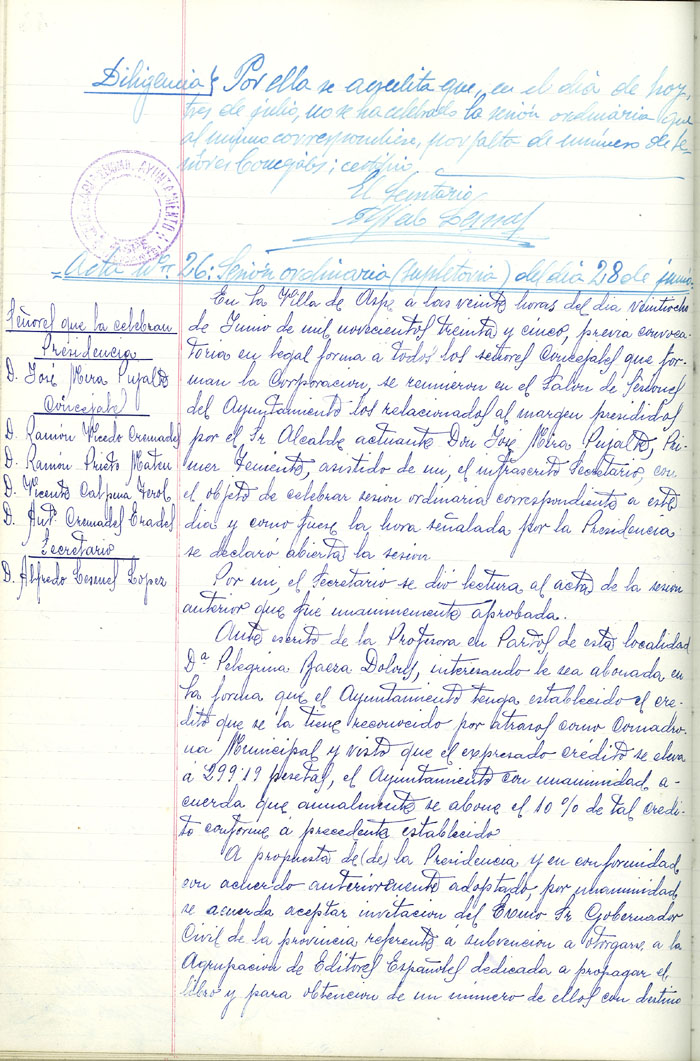 Diligencia} Por ella se acredita que, en el día de hoy,
tres de julio, no se ha celebrado la sesión ordinaria que
al mismo correspondiese, por falta de número de Se-
ñores Concejales; certifico.
El Secretario
AYUNTAMIENTO
ASPE
Acta nº 26: Sesión ordinaria (Supletoria) del día 28 de junio.
Señores que la celebran
Presidencia
D. José Mira Pujalte
Concejales
D. Ramón Vicedo Cremades
D. Ramon Prieto Mateu
D. Vicente Calpena Terol
D. Antº Cremades Erades
Secretario
D. Alfredo Lopez
En la Villa de Aspe a las veinte horas del dia veintiocho
de Junio de mil novecientos treinta y cinco, previa convoca-
toria en legal forma a todos los señores Concejales que for-
man la Corporacion, se reunieron en el Salon de Sesiones
del Ayuntamiento los relacionados al margen presididos
por el Sr Alcalde actuante Don José Mira Pujalte, Pri-
mer Teniente, asistido de mi, el infrascrito Secretario, con
el objeto de celebrar sesion ordinaria correspondiente a este
dia y como fuese la hora señalada por la Presidencia
se declaró abierta la sesion
Por mi, el Secretario se dió lectura al acta de la sesion
anterior que fué unanimemente aprobada.
Ante escrito de la Profesora en Partos de esta localidad
Dª Pelegrina Baera Dolons, interesando le sea abonada en
la forma que el Ayuntamiento tenga establecido el cre-
dito que se la tiene reconocido por atrasos como Comadro-
na Municipal y visto que el expresado credito se eleva
á 299'19 pesetas, el Ayuntamiento con unanimidad a-
cuerda que anualmente se abone el 10 % de tal credi-
to conforme á precedente establecido
A propuesta de (de) la Presidencia y en conformidad
con acuerdo anteriormente adoptado, por unanimidad
se acuerda aceptar invitacion del Exmo Sr Gobernador
Civil de la provincia referente á subvencion a otorgarse a la
Agrupacion de Editores Españoles dedicada a propagar el
libro y para obtencion de un numero de ellos con destino